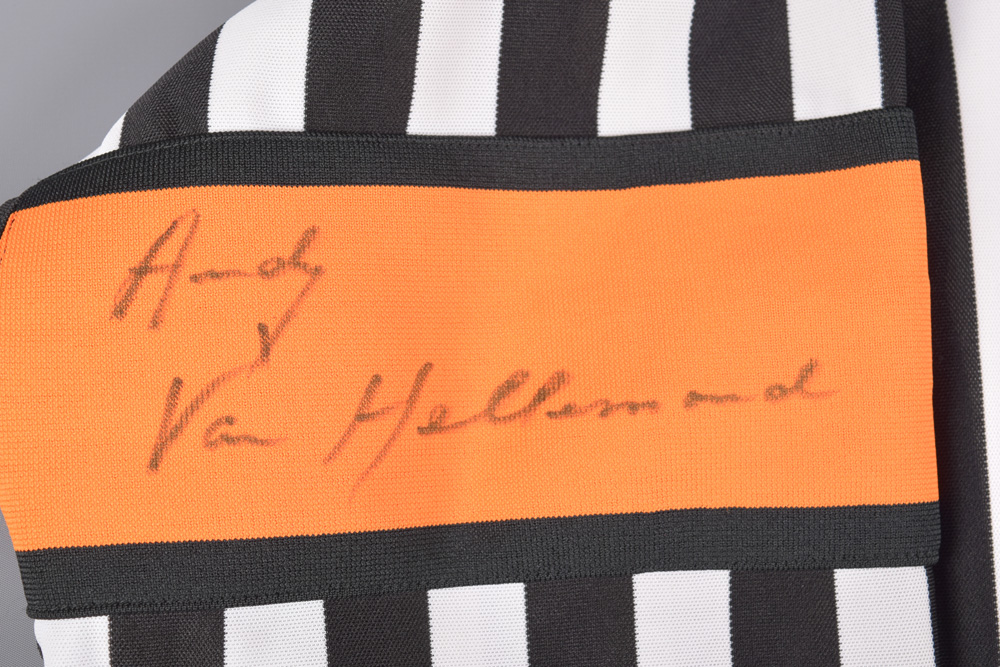 Andy
Van Hellemond